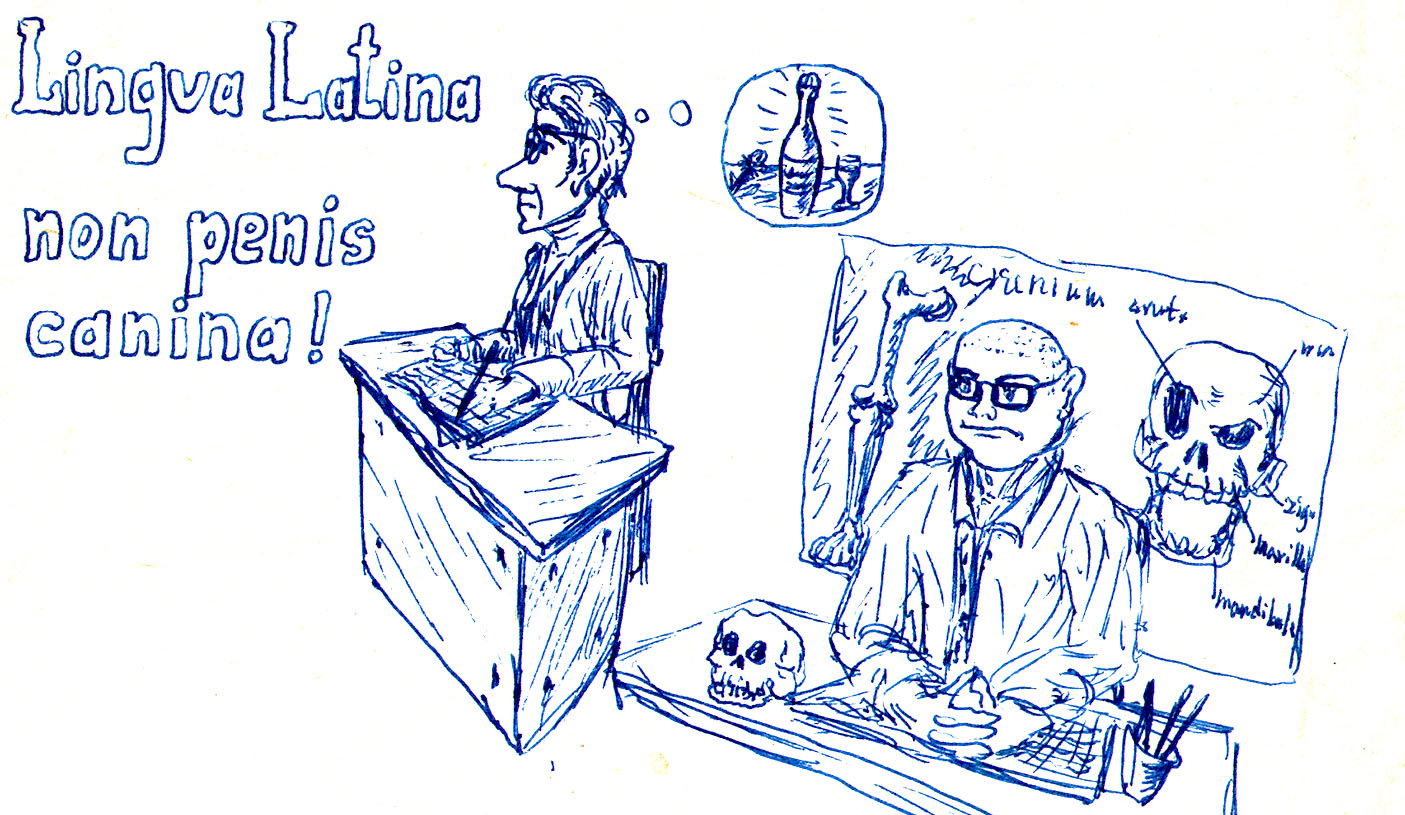 Lingva Latina
non penis
canina!
cranium
maxilla
mandibula